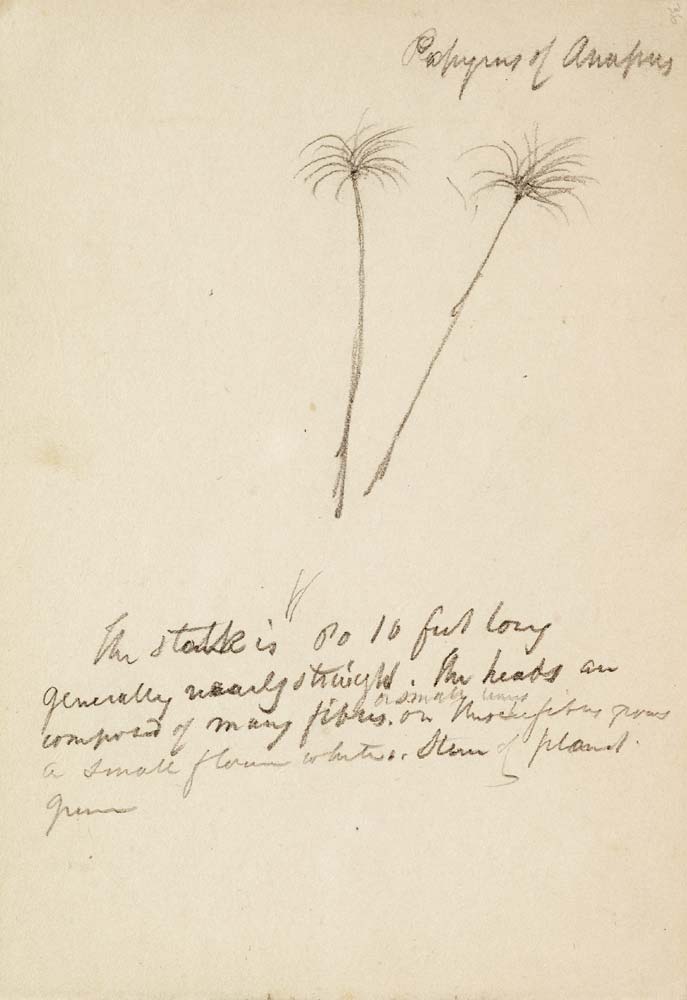 36
Papyrus of Anapus
The stalk is 8 to 10 feet long
generally nearly straight. The heads are
or small
composed of many fibres. on these fibres grows
a small flower white. Stem of plant
green